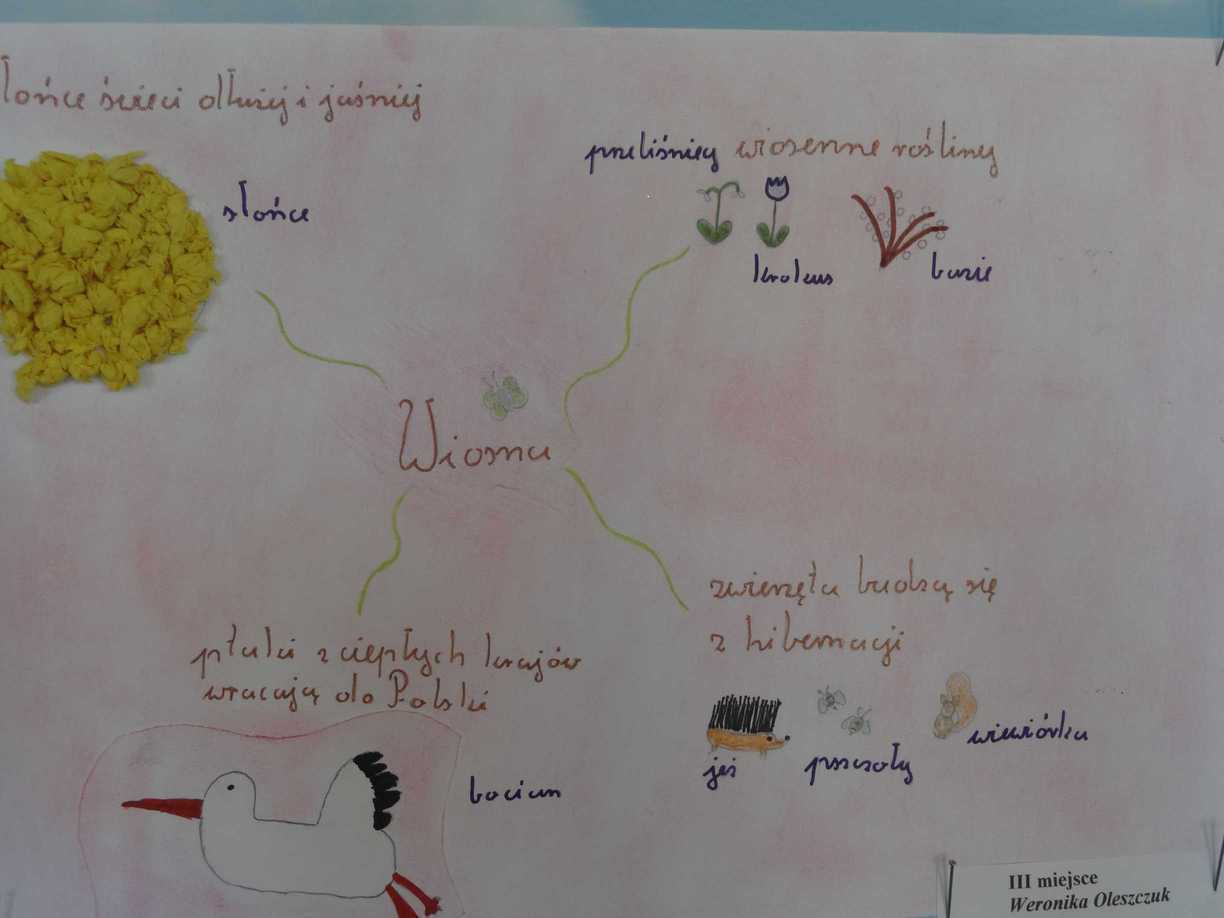 słońce świeci dłużej i jaśniej
słońce
przeliśniey wiosenne rośliny
krokus
bazie
Wiosna
zwierzęta budzą się
z hibernacji
ptaki z ciepłych krajów
wracają do Polski
jeż
pszczoły
wiewiórka
bocian
III miejsce
Weronika Oleszczuk